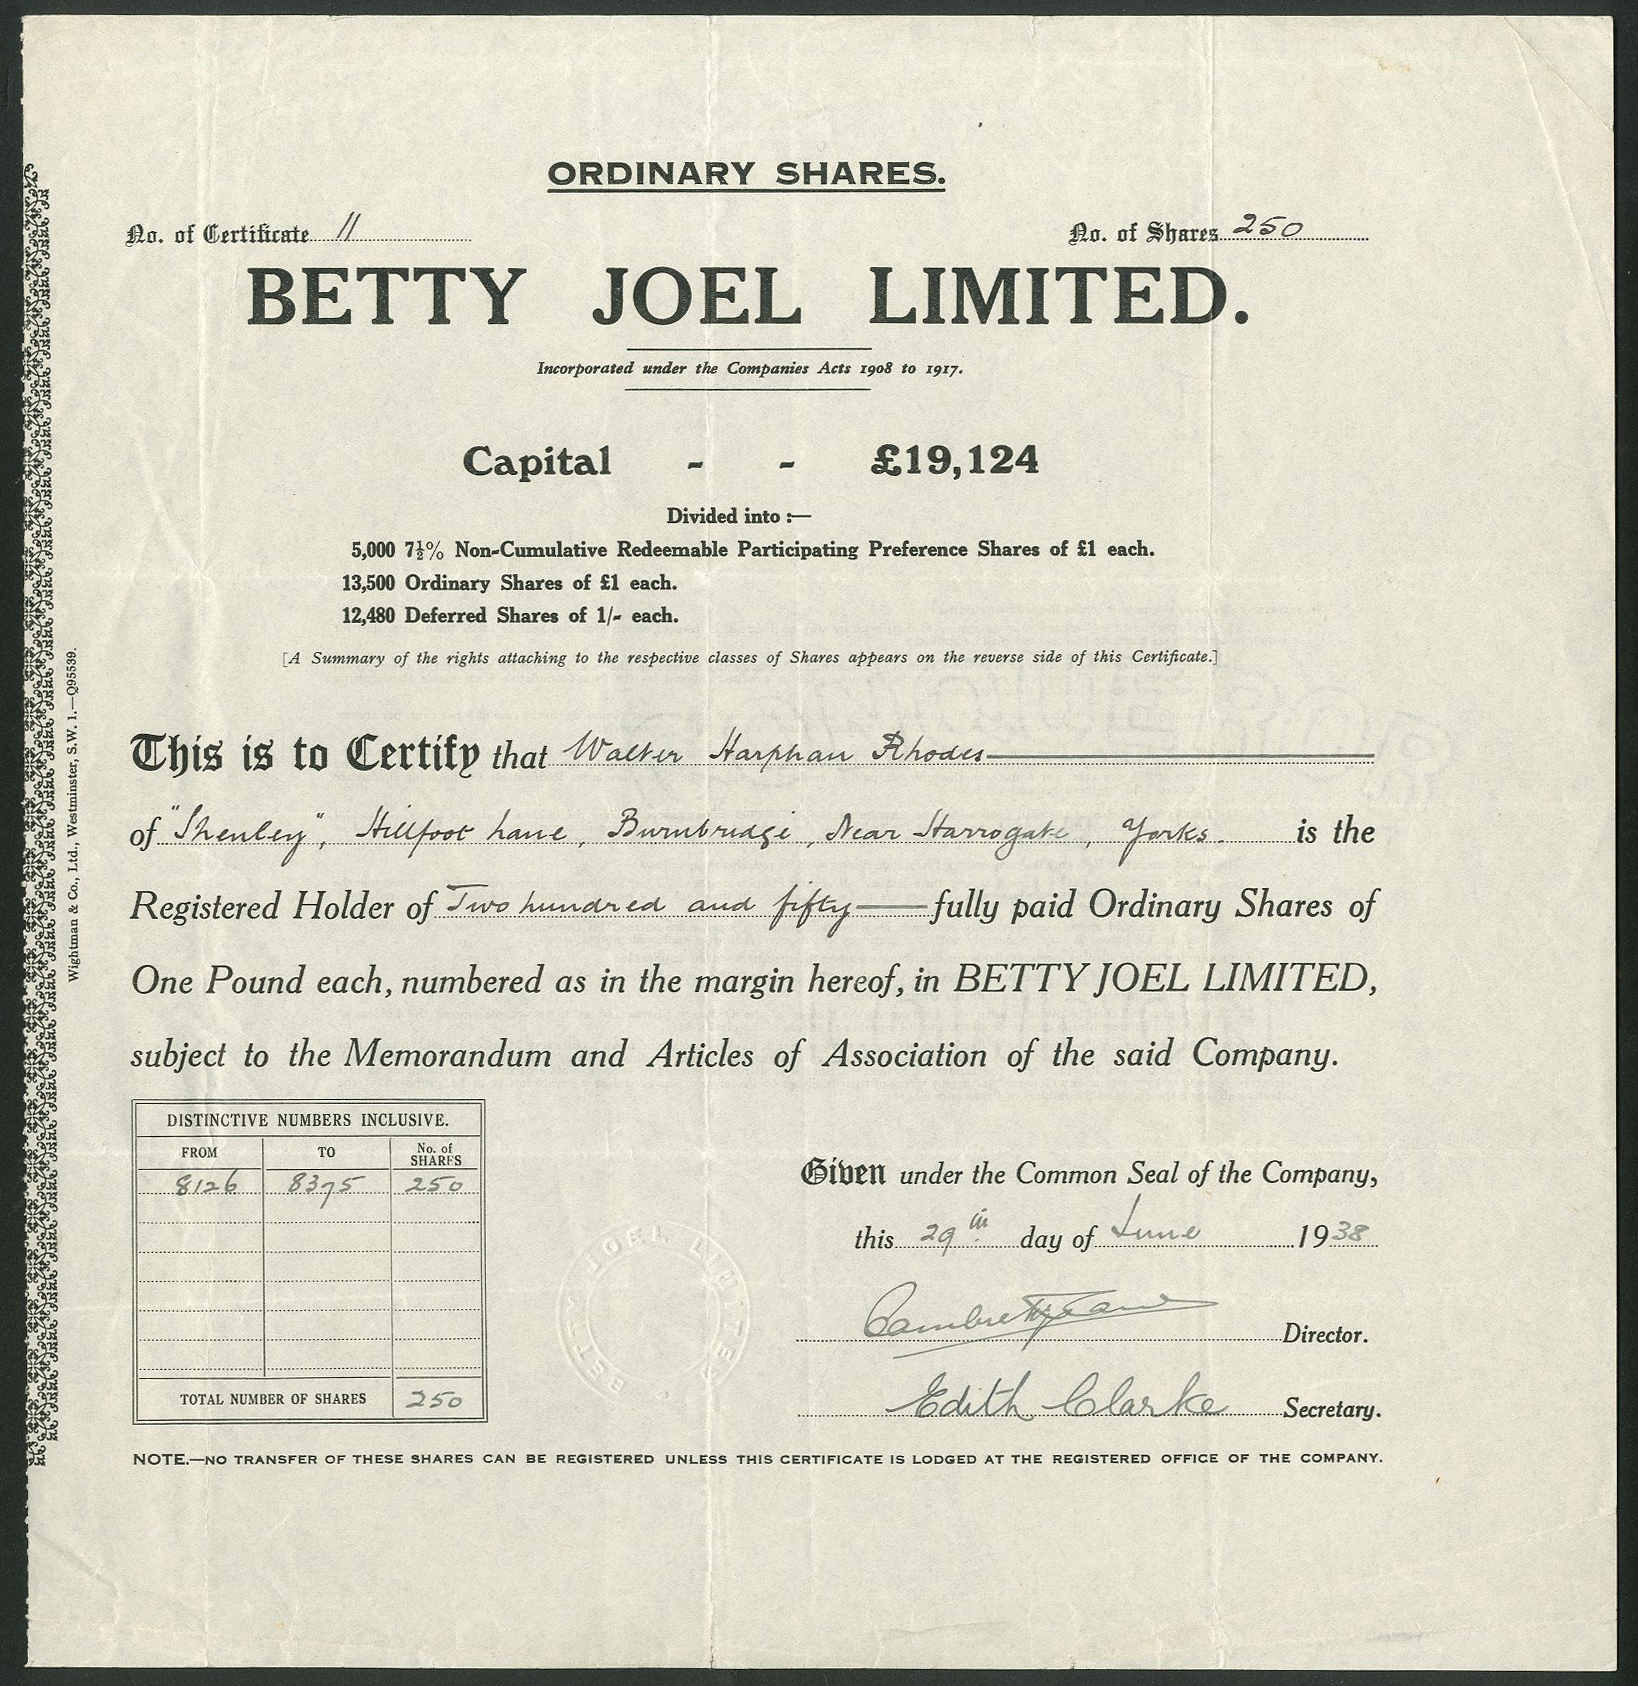 ORDINARY SHARES.
No. of Certificate 11 No. of Shares 250
BETTY JOEL LIMITED.
Incorporated under the Companies Acts 1908 to 1917.
Capital - - £19,124
Divided into :—
5,000 7½% Non-Cumulative Redeemable Participating Preference Shares of £1 each.
13,500 Ordinary Shares of £1 each.
12,480 Deferred Shares of 1/- each.
[A Summary of the rights attaching to the respective classes of Shares appears on the reverse side of this Certificate.]
This is to Certify that Walter Harphan Rhodes
of "Shenley", Hillfoot Lane, Burnbridge, Near Harrogate, Yorks. is the
Registered Holder of Two hundred and fifty fully paid Ordinary Shares of
One Pound each, numbered as in the margin hereof, in BETTY JOEL LIMITED,
subject to the Memorandum and Articles of Association of the said Company.
DISTINCTIVE NUMBERS INCLUSIVE.
FROM TO No. of SHARES
8126 8375 250
TOTAL NUMBER OF SHARES 250
BETTY JOEL LIMITED
Given under the Common Seal of the Company,
this 29th day of June 1938
Director.
Edith Clarke Secretary.
NOTE.—NO TRANSFER OF THESE SHARES CAN BE REGISTERED UNLESS THIS CERTIFICATE IS LODGED AT THE REGISTERED OFFICE OF THE COMPANY.
Wightman & Co., Ltd., Westminster, S.W. 1.—Q95539.